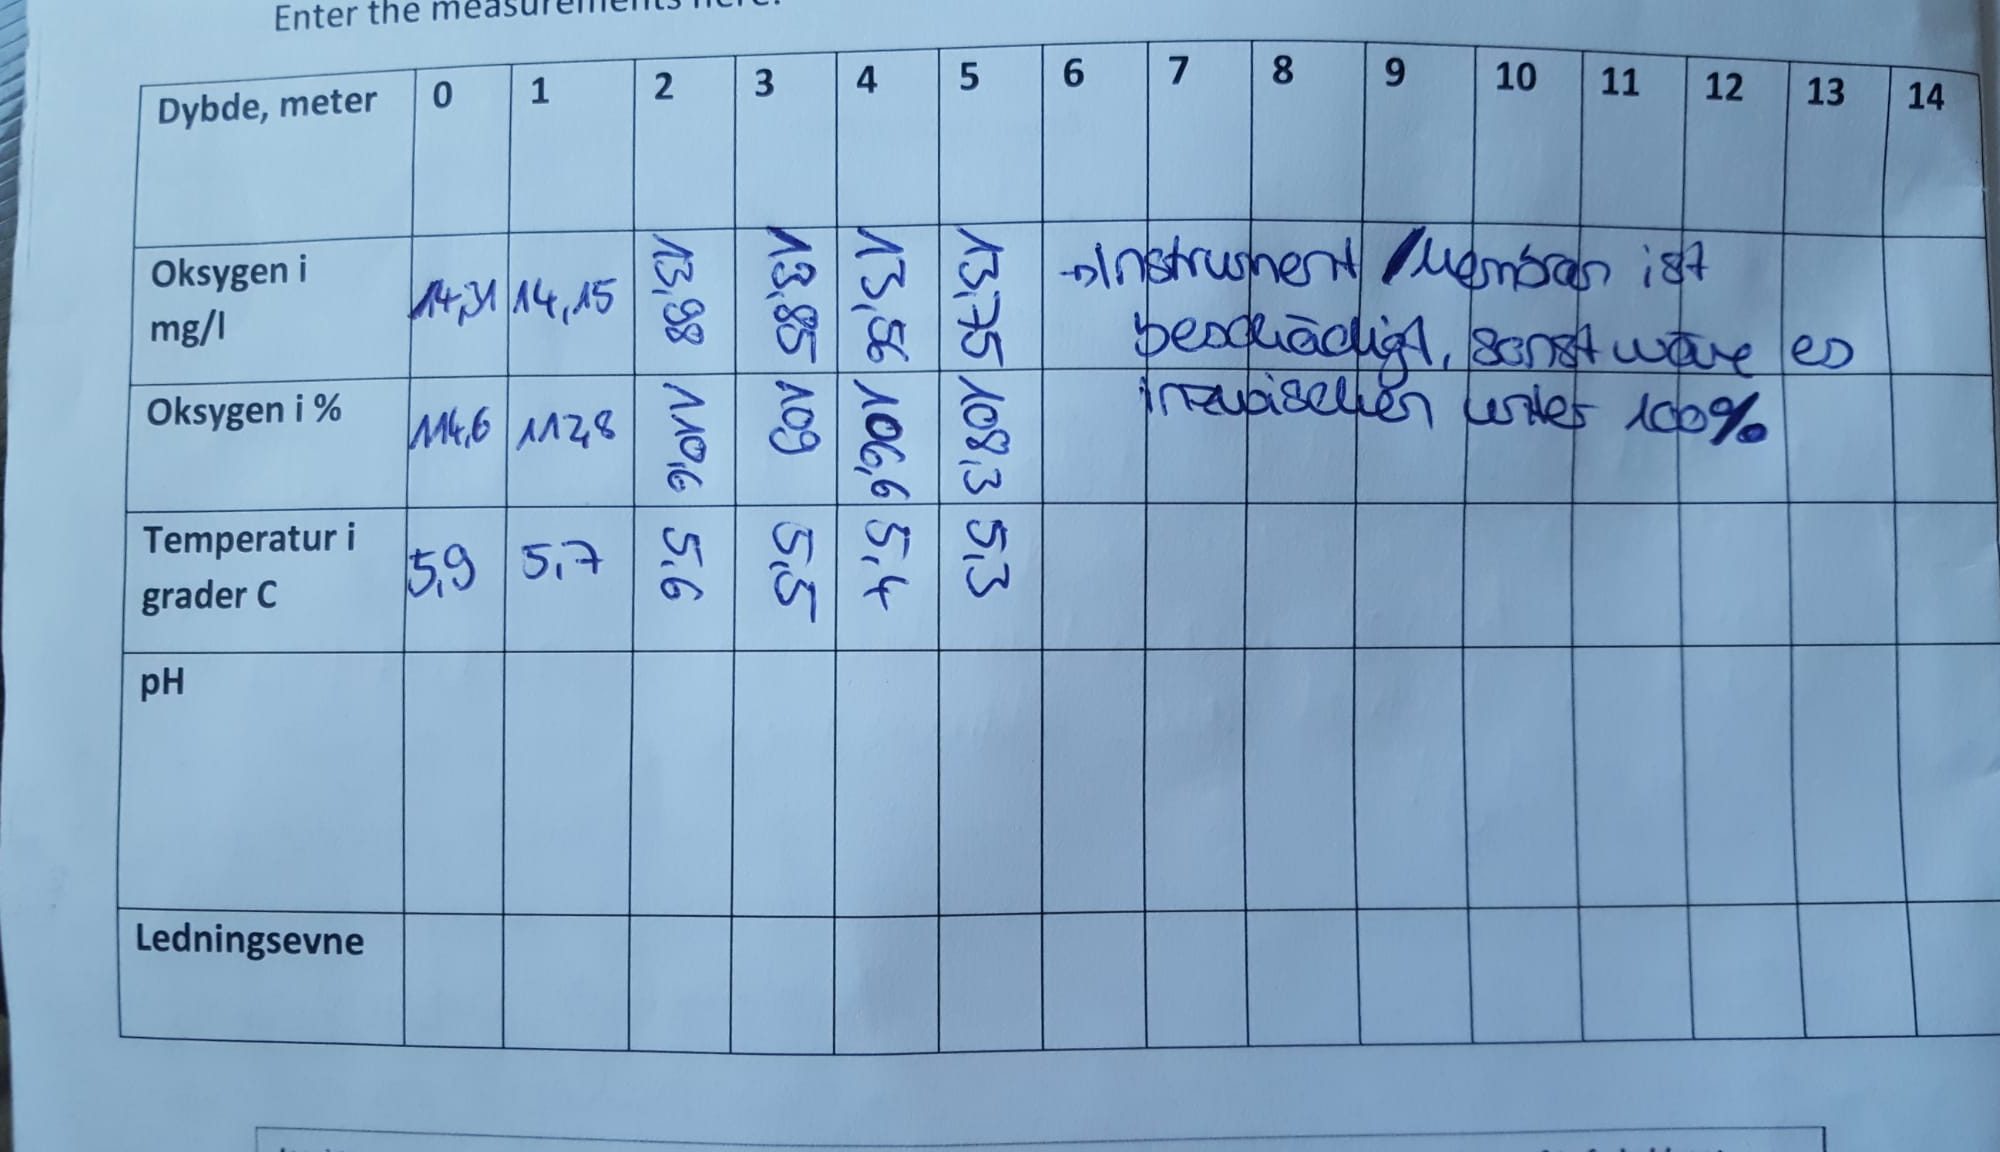 Enter the measurements here:
Dybde, meter 0 1 2 3 4 5 6 7 8 9 10 11 12 13 14
Oksygen i mg/l 14,31 14,15 13,98 13,85 13,56 13,75
→ Instrument / Membran ist
beschädigt, sonst wäre es
inzwischen unter 100%
Oksygen i % 114,6 112,8 110,6 109 106,6 108,3
Temperatur i grader C 5,9 5,7 5,6 5,5 5,4 5,3
pH
Ledningsevne